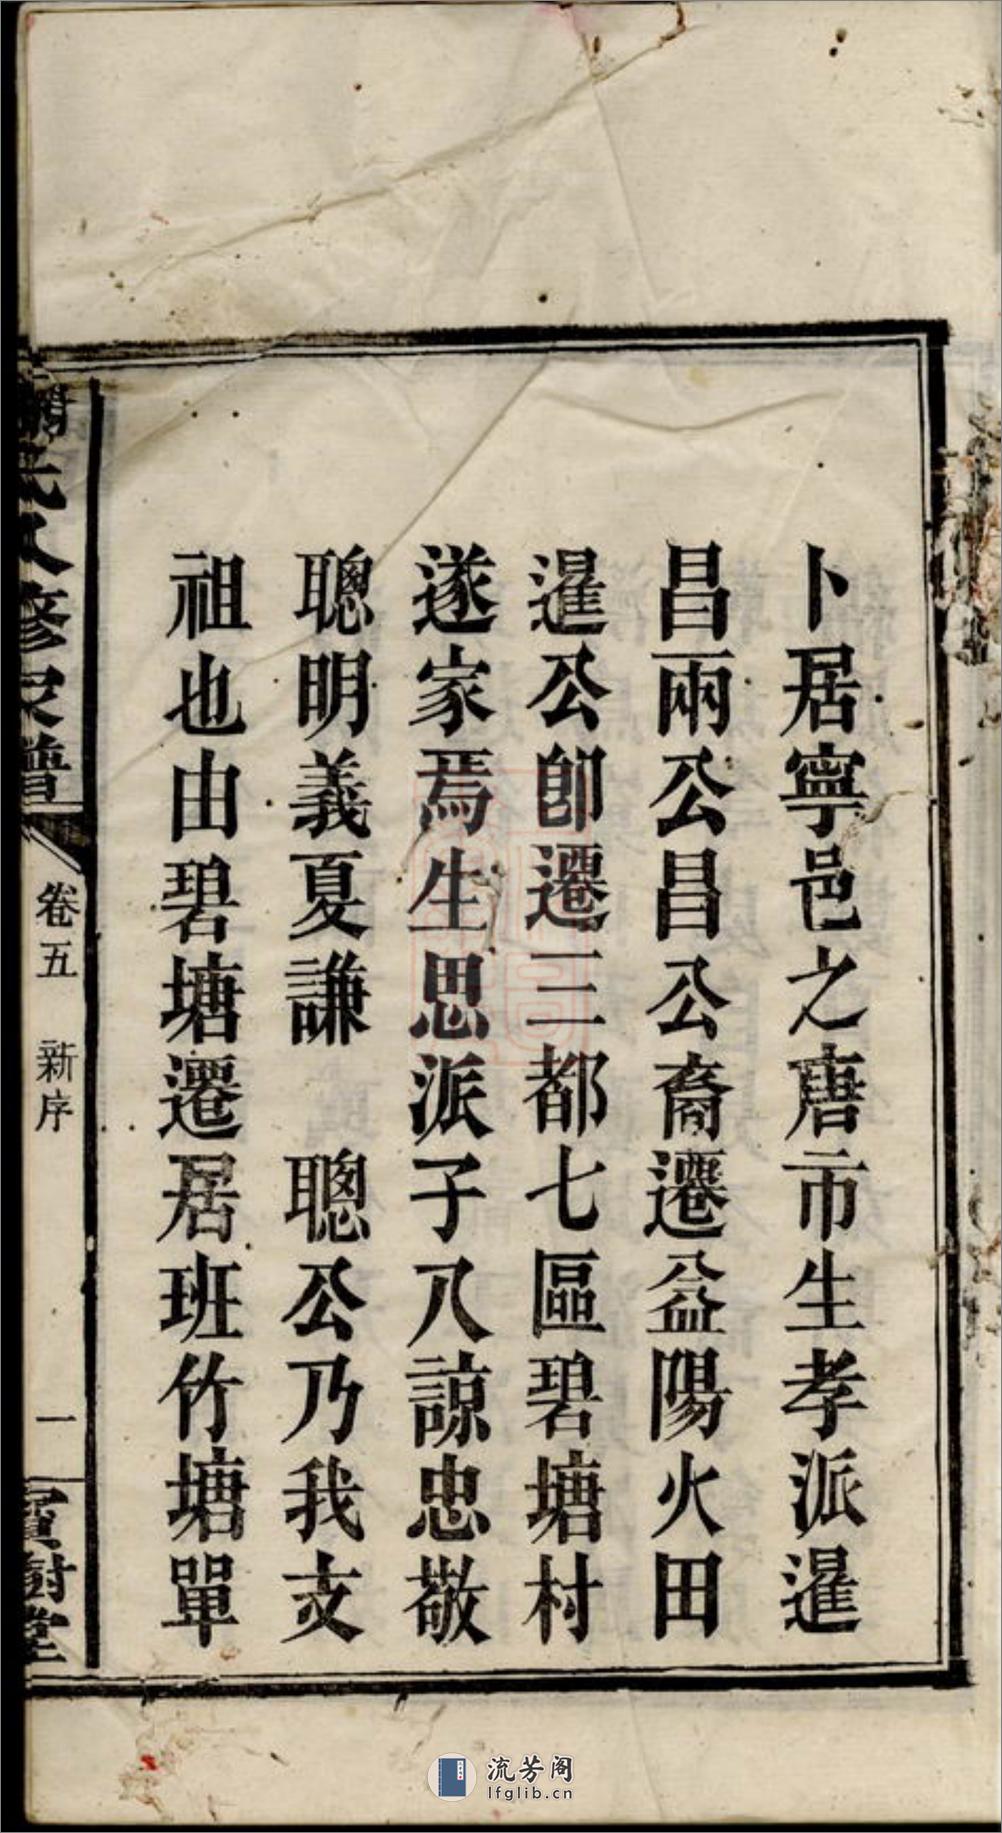 卜居寧邑之唐市生孝派暹
昌兩公昌公裔遷益陽火田
暹公卽遷三都七區碧塘村
遂家焉生思派子八諒忠敬
聰明義夏謙　聰公乃我支
祖也由碧塘遷居班竹塘單
氏八修家譜
卷五　新序
一
寶樹堂
流芳阁
lfglib.cn